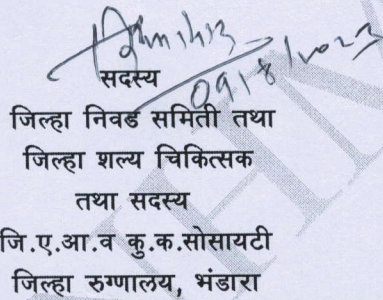 09/8/2023
सदस्य
जिल्हा निवड समिती तथा
जिल्हा शल्य चिकित्सक
तथा सदस्य
जि.ए.आ.व कु.क.सोसायटी
जिल्हा रुग्णालय, भंडारा